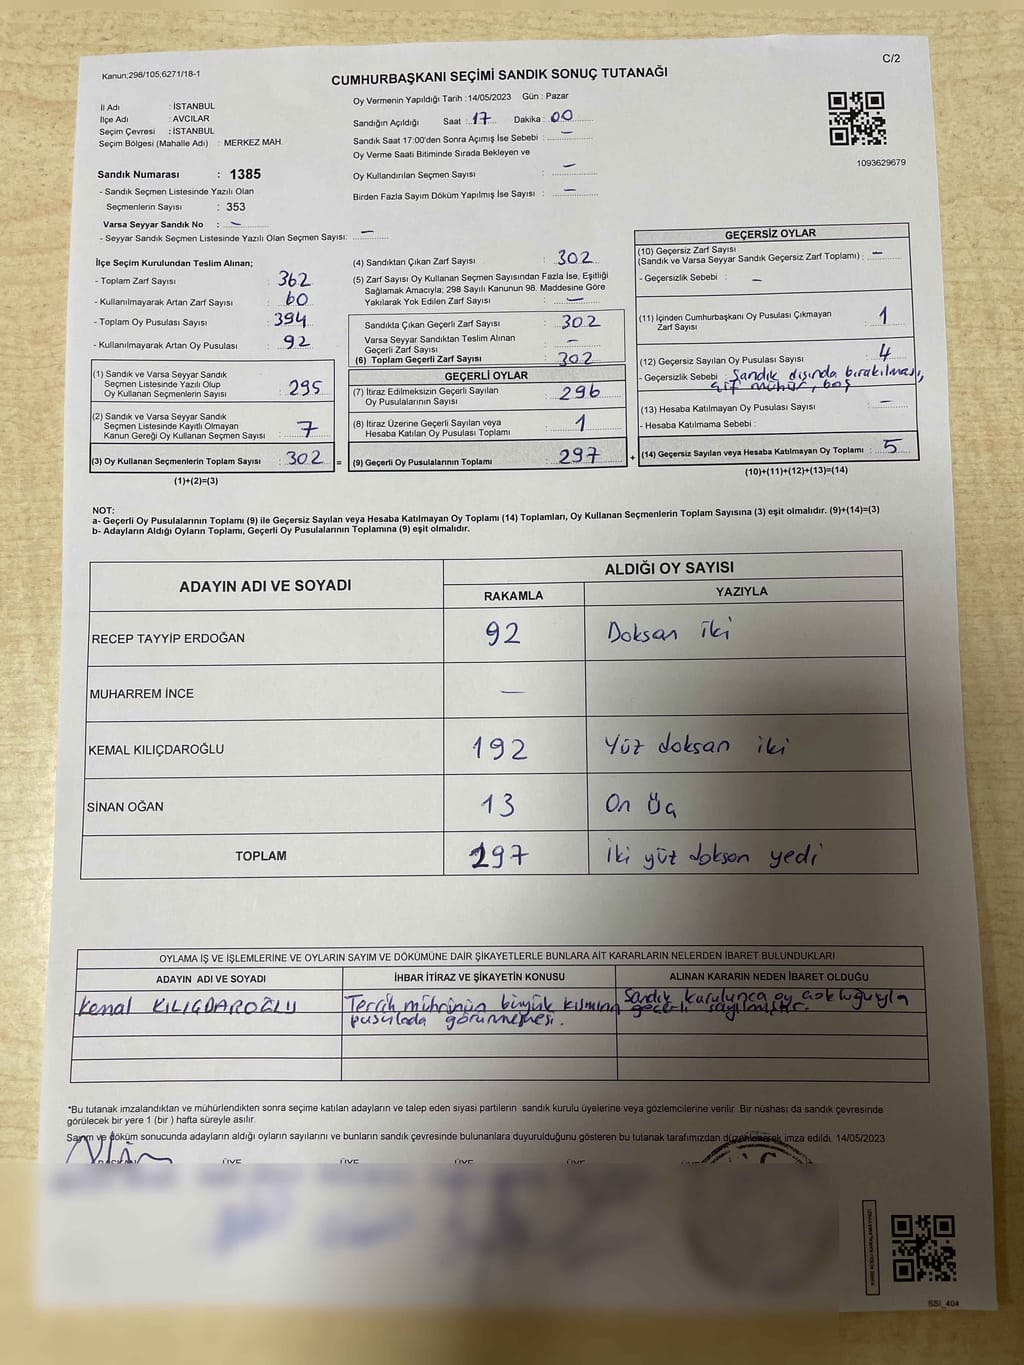 Kanun;298/105;6271/18-1
C/2
CUMHURBAŞKANI SEÇİMİ SANDIK SONUÇ TUTANAĞI
İl Adı : İSTANBUL
İlçe Adı : AVCILAR
Seçim Çevresi : İSTANBUL
Seçim Bölgesi (Mahalle Adı) : MERKEZ MAH.
Sandık Numarası : 1385
- Sandık Seçmen Listesinde Yazılı Olan
Seçmenlerin Sayısı : 353
Varsa Seyyar Sandık No : –
- Seyyar Sandık Seçmen Listesinde Yazılı Olan Seçmen Sayısı: –
Oy Vermenin Yapıldığı Tarih :14/05/2023 Gün : Pazar
Sandığın Açıldığı Saat : 17 Dakika : 00
Sandık Saat 17:00'den Sonra Açımış İse Sebebi : –
Oy Verme Saati Bitiminde Sırada Bekleyen ve
Oy Kullandırılan Seçmen Sayısı : –
Birden Fazla Sayım Döküm Yapılmış İse Sayısı : –
1093629679
İlçe Seçim Kurulundan Teslim Alınan;
- Toplam Zarf Sayısı : 362
- Kullanılmayarak Artan Zarf Sayısı : 60
- Toplam Oy Pusulası Sayısı : 394
- Kullanılmayarak Artan Oy Pusulası : 92
(1) Sandık ve Varsa Seyyar Sandık
Seçmen Listesinde Yazılı Olup
Oy Kullanan Seçmenlerin Sayısı : 295
(2) Sandık ve Varsa Seyyar Sandık
Seçmen Listesinde Kayıtlı Olmayan
Kanun Gereği Oy Kullanan Seçmen Sayısı : 7
(3) Oy Kullanan Seçmenlerin Toplam Sayısı : 302 =
(1)+(2)=(3)
(4) Sandıktan Çıkan Zarf Sayısı : 302
(5) Zarf Sayısı Oy Kullanan Seçmen Sayısından Fazla İse, Eşitliği
Sağlamak Amacıyla; 298 Sayılı Kanunun 98. Maddesine Göre
Yakılarak Yok Edilen Zarf Sayısı : –
Sandıkta Çıkan Geçerli Zarf Sayısı : 302
Varsa Seyyar Sandıktan Teslim Alınan
Geçerli Zarf Sayısı : –
(6) Toplam Geçerli Zarf Sayısı : 302
GEÇERLİ OYLAR
(7) İtiraz Edilmeksizin Geçerli Sayılan
Oy Pusulalarının Sayısı : 296
(8) İtiraz Üzerine Geçerli Sayılan veya
Hesaba Katılan Oy Pusulası Toplamı : 1
(9) Geçerli Oy Pusulalarının Toplamı : 297 +
GEÇERSİZ OYLAR
(10) Geçersiz Zarf Sayısı
(Sandık ve Varsa Seyyar Sandık Geçersiz Zarf Toplamı) : –
- Geçersizlik Sebebi : –
(11) İçinden Cumhurbaşkanı Oy Pusulası Çıkmayan
Zarf Sayısı : 1
(12) Geçersiz Sayılan Oy Pusulası Sayısı : 4
- Geçersizlik Sebebi : Sandık dışında bırakılması,
çift mühür, boş
(13) Hesaba Katılmayan Oy Pusulası Sayısı : –
- Hesaba Katılmama Sebebi :
(14) Geçersiz Sayılan veya Hesaba Katılmayan Oy Toplamı : 5
(10)+(11)+(12)+(13)=(14)
NOT:
a- Geçerli Oy Pusulalarının Toplamı (9) ile Geçersiz Sayılan veya Hesaba Katılmayan Oy Toplamı (14) Toplamları, Oy Kullanan Seçmenlerin Toplam Sayısına (3) eşit olmalıdır. (9)+(14)=(3)
b- Adayların Aldığı Oyların Toplamı, Geçerli Oy Pusulalarının Toplamına (9) eşit olmalıdır.
ADAYIN ADI VE SOYADI
ALDIĞI OY SAYISI
RAKAMLA YAZIYLA
RECEP TAYYİP ERDOĞAN 92 Doksan iki
MUHARREM İNCE –
KEMAL KILIÇDAROĞLU 192 Yüz doksan iki
SİNAN OĞAN 13 On Üç
TOPLAM 297 İki yüz doksan yedi
OYLAMA İŞ VE İŞLEMLERİNE VE OYLARIN SAYIM VE DÖKÜMÜNE DAİR ŞİKAYETLERLE BUNLARA AİT KARARLARIN NELERDEN İBARET BULUNDUKLARI
ADAYIN ADI VE SOYADI İHBAR İTİRAZ VE ŞİKAYETİN KONUSU ALINAN KARARIN NEDEN İBARET OLDUĞU
Kemal KILIÇDAROĞLU Tercih mührünün büyük kısmının Sandık kurulunca oy çokluğuyla
pusulada görünmemesi. geçerli sayılmıştır.
*Bu tutanak imzalandıktan ve mühürlendikten sonra seçime katılan adayların ve talep eden siyasi partilerin sandık kurulu üyelerine veya gözlemcilerine verilir. Bir nüshası da sandık çevresinde
görülecek bir yere 1 (bir ) hafta süreyle asılır.
Sayım ve döküm sonucunda adayların aldığı oyların sayılarını ve bunların sandık çevresinde bulunanlara duyurulduğunu gösteren bu tutanak tarafımızdan düzenlenerek imza edildi. 14/05/2023
BAŞKAN ÜYE ÜYE ÜYE ÜYE ÜYE
SSI_404